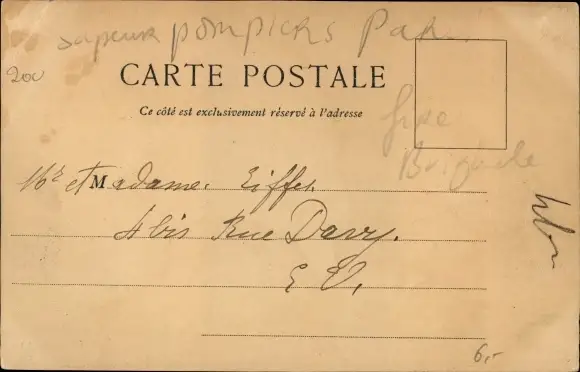 Sapeur pompiers Par
200
CARTE POSTALE
Ce côté est exclusivement réservé à l'adresse
fire
Brigade
Mr et Madame. Eiffes.
4 bis Rue Davy.
E V.
6,-